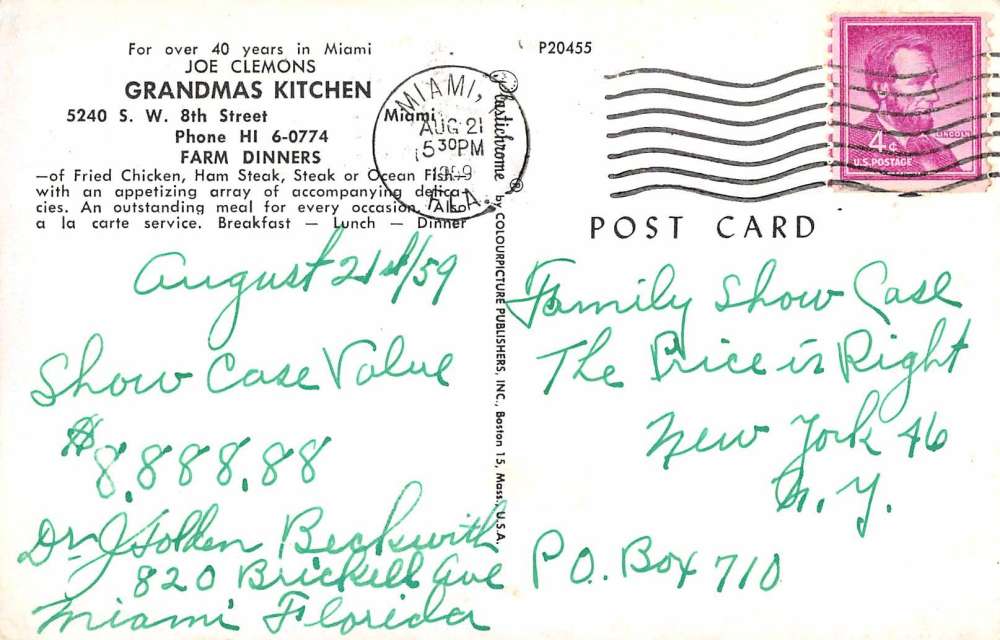 For over 40 years in Miami
JOE CLEMONS
GRANDMAS KITCHEN
5240 S. W. 8th Street Miami
Phone HI 6-0774
FARM DINNERS
—of Fried Chicken, Ham Steak, Steak or Ocean Fish—
with an appetizing array of accompanying delica-
cies. An outstanding meal for every occasion. Also
a la carte service. Breakfast — Lunch — Dinner
August 21st/59
Show Case Value
$8,888.88
Dr J Golden Beckwith
820 Brickell Ave
Miami Florida
Plastichrome ® by COLOURPICTURE PUBLISHERS, INC., Boston 15, Mass., U.S.A.
P20455
MIAMI,
AUG 21
5 30 PM
1959
FLA.
LINCOLN
4¢
U.S. POSTAGE
POST CARD
Family Show Case
The Price is Right
New York 46
N.Y.
P.O. Box 710